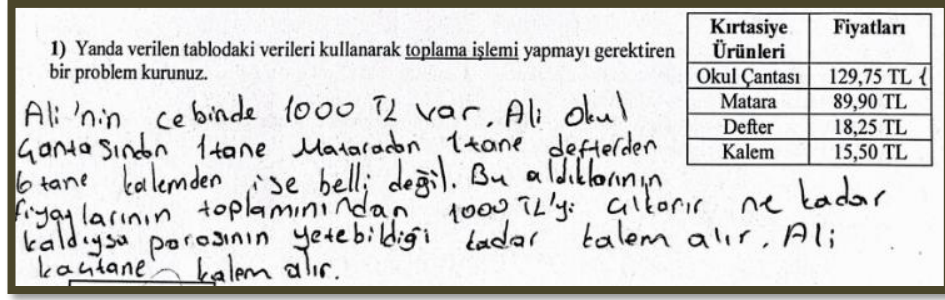 1) Yanda verilen tablodaki verileri kullanarak toplama işlemi yapmayı gerektiren
bir problem kurunuz.
Kırtasiye Ürünleri Fiyatları
Okul Çantası 129,75 TL
Matara 89,90 TL
Defter 18,25 TL
Kalem 15,50 TL
Ali'nin cebinde 1000 TL var. Ali okul
çantasından 1 tane Mataradan 1 tane defterden
6 tane kalemden ise belli değil. Bu aldıklarının
fiyaylarının toplamınından 1000 TL'yi çıkarır ne kadar
kaldıysa parasının yetebildiği kadar kalem alır. Ali
kaçıtane kalem alır.